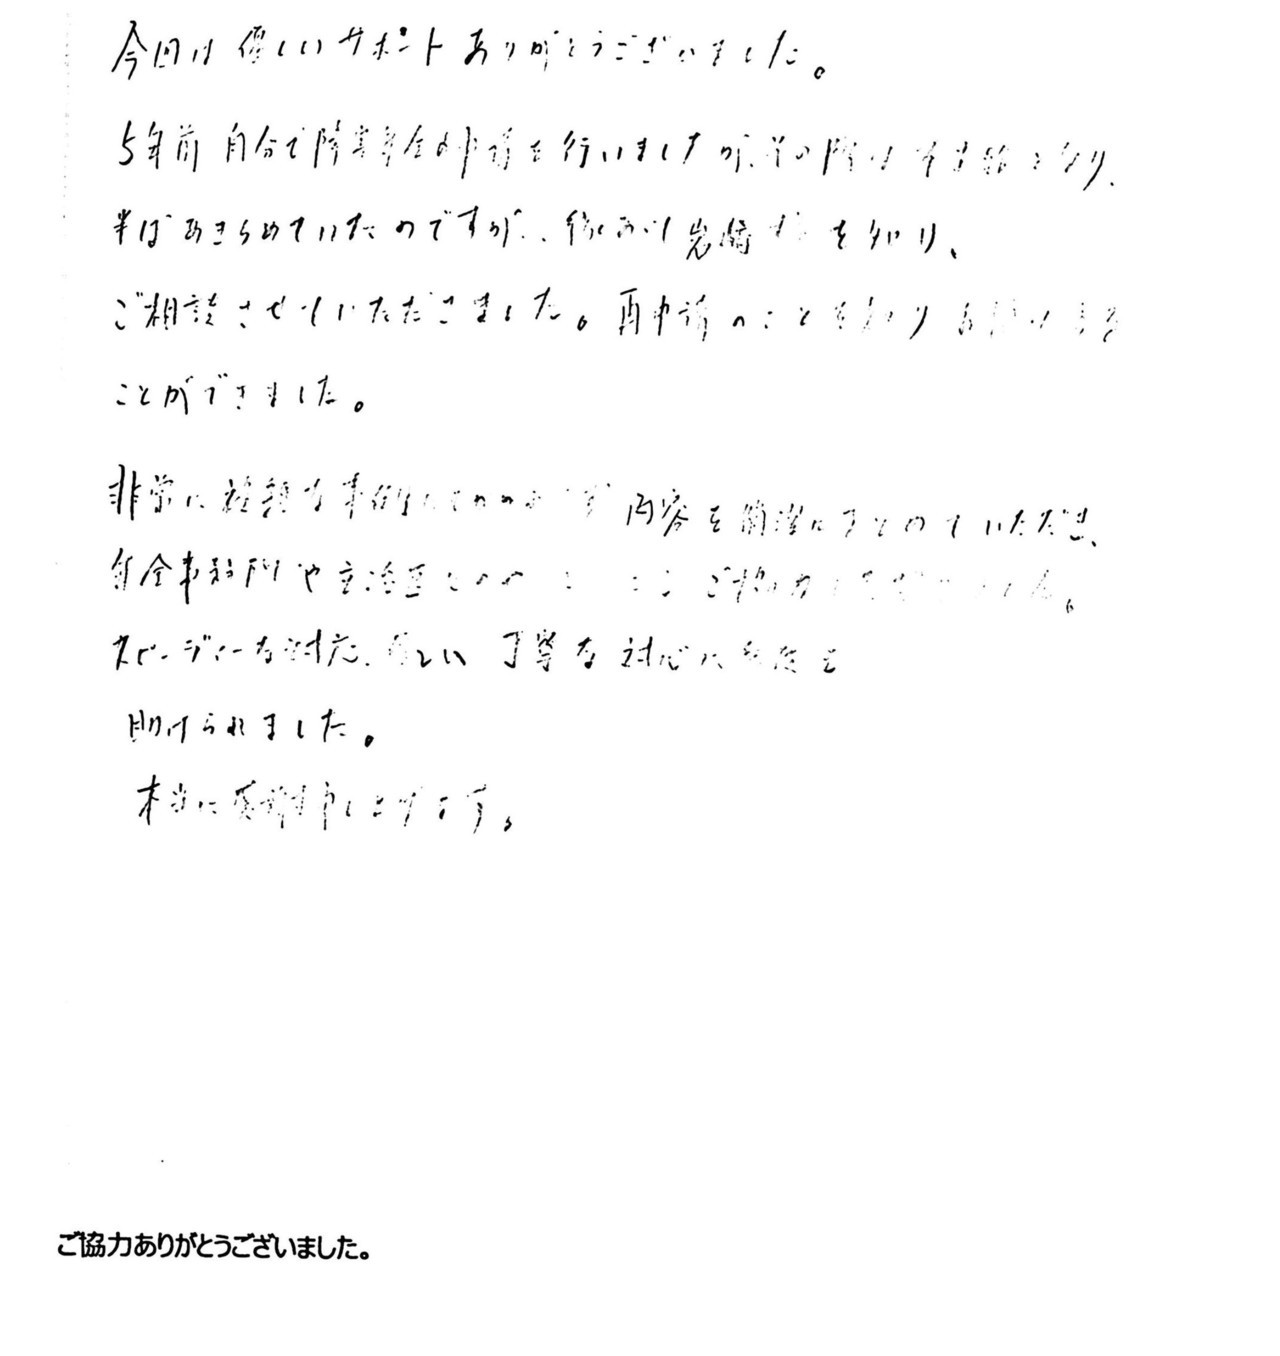 今回は優しいサポートありがとうございました。
5年前自分で障害年金の申請を行いましたが、その際は不支給となり、
半ばあきらめていたのですが、縁あり岩崎さんを知り、
ご相談させていただきました。再申請のことを知りお願いする
ことができました。
非常に複雑な事例にもかかわらず内容を簡潔にまとめていただき、
年金事務所や主治医との ご協力
スピーディーな対応、優しい丁寧な対応に
助けられました。
本当に感謝申し上げます。
ご協力ありがとうございました。